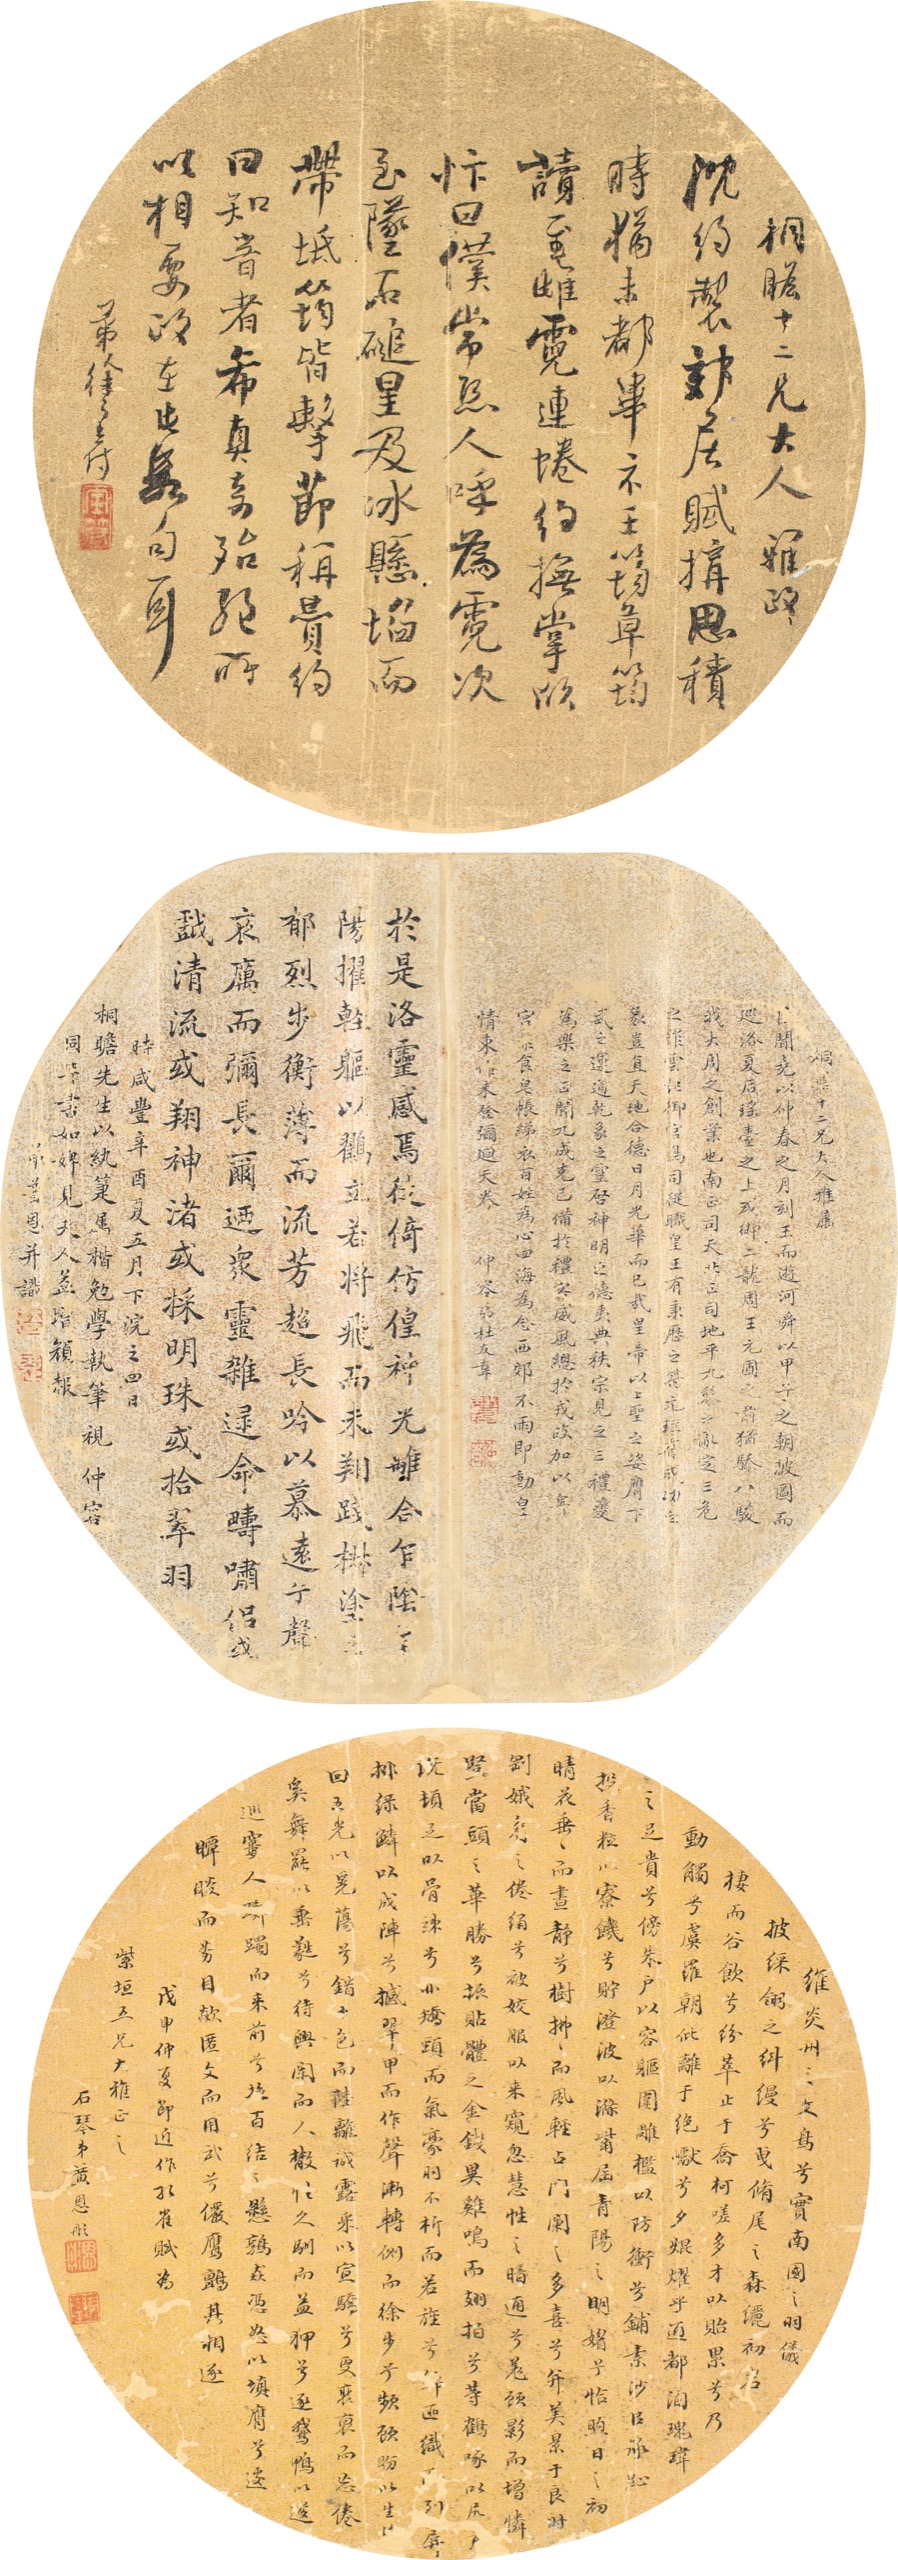 桐瞻十二兄大人 雅政
沈約製郊居賦搆思積
時猶未都畢示王筠草筠
讀至雌霓連蜷約撫掌欣
忭曰僕常恐人呼為霓次
至墜石磓星及冰懸埳而
帶坻筠皆擊節稱賞約
曰知音者希真賞殆絕所
以相要政在此數句耳
弟徐
桐瞻十二兄大人雅屬
聞堯以仲春之月刻玉而遊河舜以甲子之朝披圖而
巡洛夏后瑤臺之上或御二龍周王元圃之前猶驂八駿
我大周之創業也南正司天北正司地平九黎之亂定三危
之罪雲紀御官鳥司從職皇王有秉歷之符元珪有成功之
豈直天地合德日月光華而已哉皇帝以上聖之姿膺下
武之運通乾象之靈啓神明之德夷典秩宗見之三禮夔
為樂之正聞九成克己備於禮容威風總於戎政加以卑
宮菲食皂帳綈衣百姓為心四海為念西郊不雨即動皇
情東作未登彌迴天眷 仲容弟杜友韋
於是洛靈感焉徙倚彷徨神光離合乍陰乍
陽擢輕軀以鶴立若將飛而未翔踐椒塗之
郁烈步衡薄而流芳超長吟以慕遠兮聲
哀厲而彌長爾迺衆靈雜遝命疇嘯侶或
戲清流或翔神渚或採明珠或拾翠羽
時咸豐辛酉夏五月下浣之四日
桐瞻先生以紈箑屬楷勉學執筆視 仲容
同年書如婢見夫人益增顏赧
恩并識
維炎州之文鳥兮實南國之羽儀
披綵翎之糾縵兮曳脩尾之森纚初岩
棲而谷飲兮紛萃止于喬柯嗟多才以貽累兮乃
動觸兮虞羅朝仳離于絕巘兮夕焜燿乎通都洵瑰瑋
之足貴兮傍朱戶以容軀圍雕檻以防衝兮鋪素沙以承趾
投香粒以療饑兮貯澄波以滌嘴屆青陽之明媚兮怡煦日之初
晴花垂垂而晝靜兮樹拂拂而風輕占門闌之多喜兮弁美景于良時
劉娥之倦繡兮被姣服以來窺忽慧性之暗通兮晃顧影而增憐
豎當頭之華勝兮振貼體之金鈿異雞鳴而翅拍兮等鶴啄以尻
既頓足以骨竦兮亦矯頸而氣豪羽不析而若旌兮
排綠鱗以成陣兮撼翠甲而作聲漸轉側而徐步兮頻顧盼以生
回五光以晃蕩兮錯五色而陸離誠露采以宣驕兮更裒裒而忘倦
奚舞罷以垂氋兮待興闌而人散忙久馴而益狎兮逐鶩鴨以遊
巡審人躑躅而來前兮結百結之懸鶉忽憑怒以填膺兮遂
瞬睒而努目欻匿文而用武兮儼鷹鸇其相逐
戊申仲夏節近作孔雀賦為
紫垣五兄大雅正之
石琴弟黃恩彤